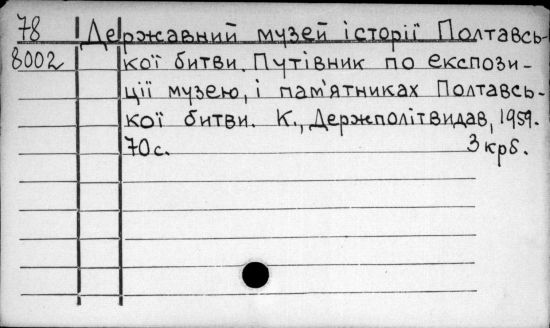 78 Державний музей історії Полтавсь-
8002 кої битви. Путівник по експози-
ції музею, і пам'ятниках Полтавсь-
кої битви. К., Держполітвидав, 1959.
70 с. 3 крб.